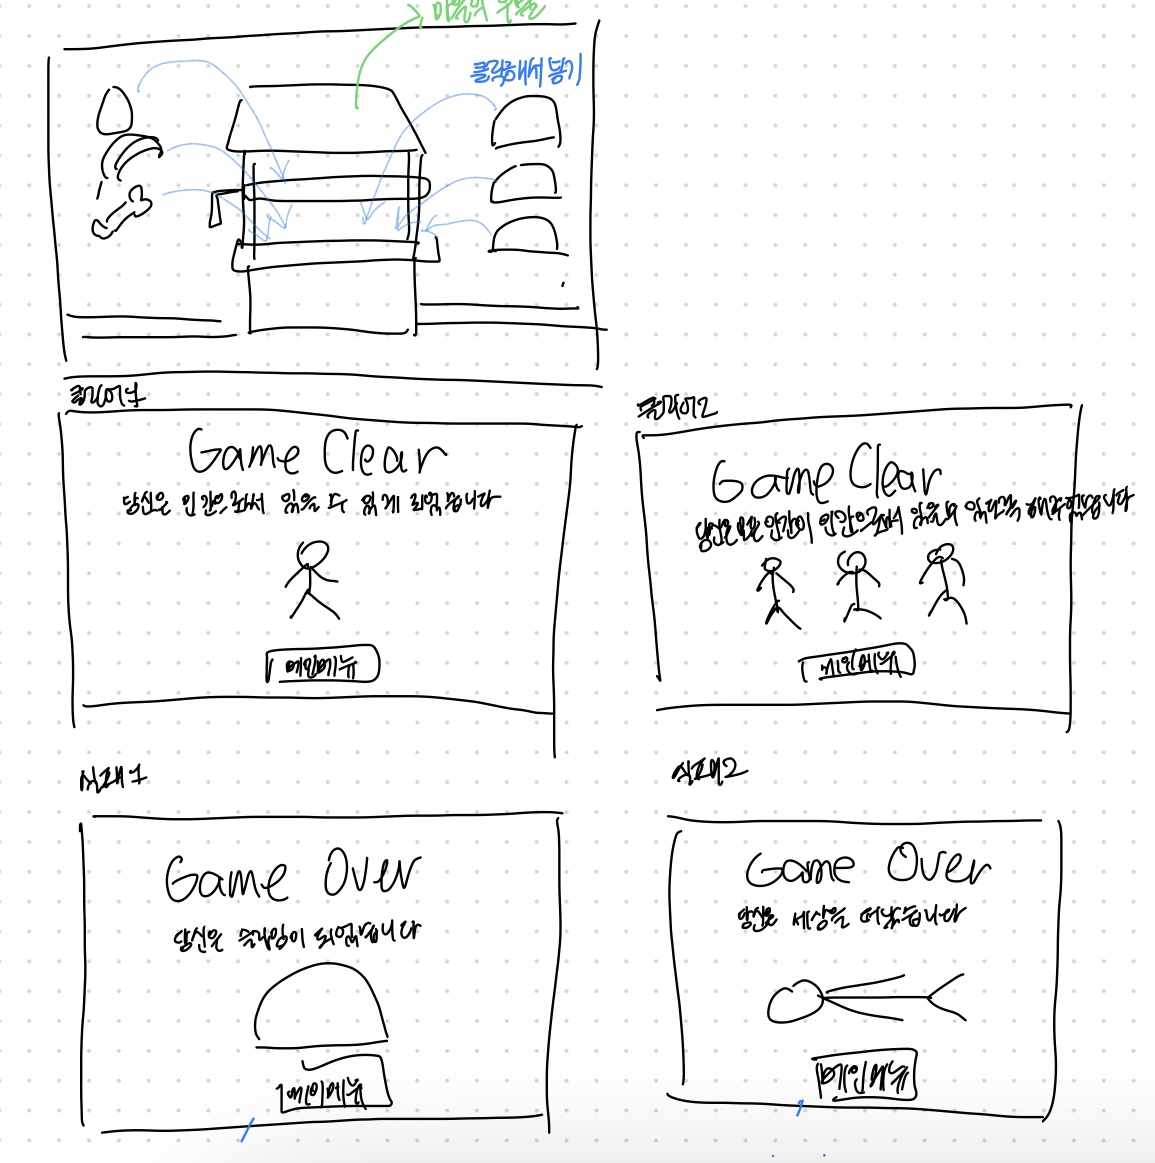 마을의 우물
클릭해서 넣기
클리어1
Game Clear
당신은 인간으로써 있을 수 있게 되었습니다
메인메뉴
클리어2
Game Clear
당신은 모든 인간이 인간으로써 있을 수 있도록 해주었습니다
메인메뉴
실패1
Game Over
당신은 슬라임이 되었습니다
메인메뉴
실패2
Game Over
당신은 세상을 떠났습니다
메인메뉴